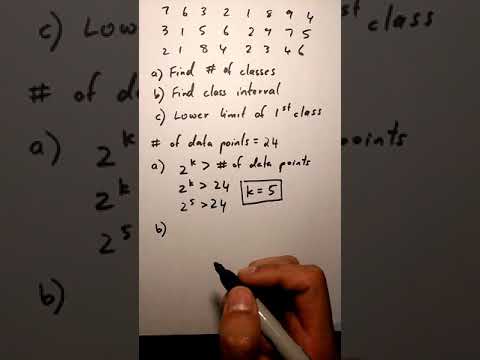 7 6 3 2 1 8 9 4
3 1 5 6 2 9 7 5
2 1 8 4 2 3 4 6
a) Find # of classes
b) Find class interval
c) Lower limit of 1st class
# of data points = 24
a) 2^k > # of data points
2^k > 24
2^5 > 24
k = 5
b)